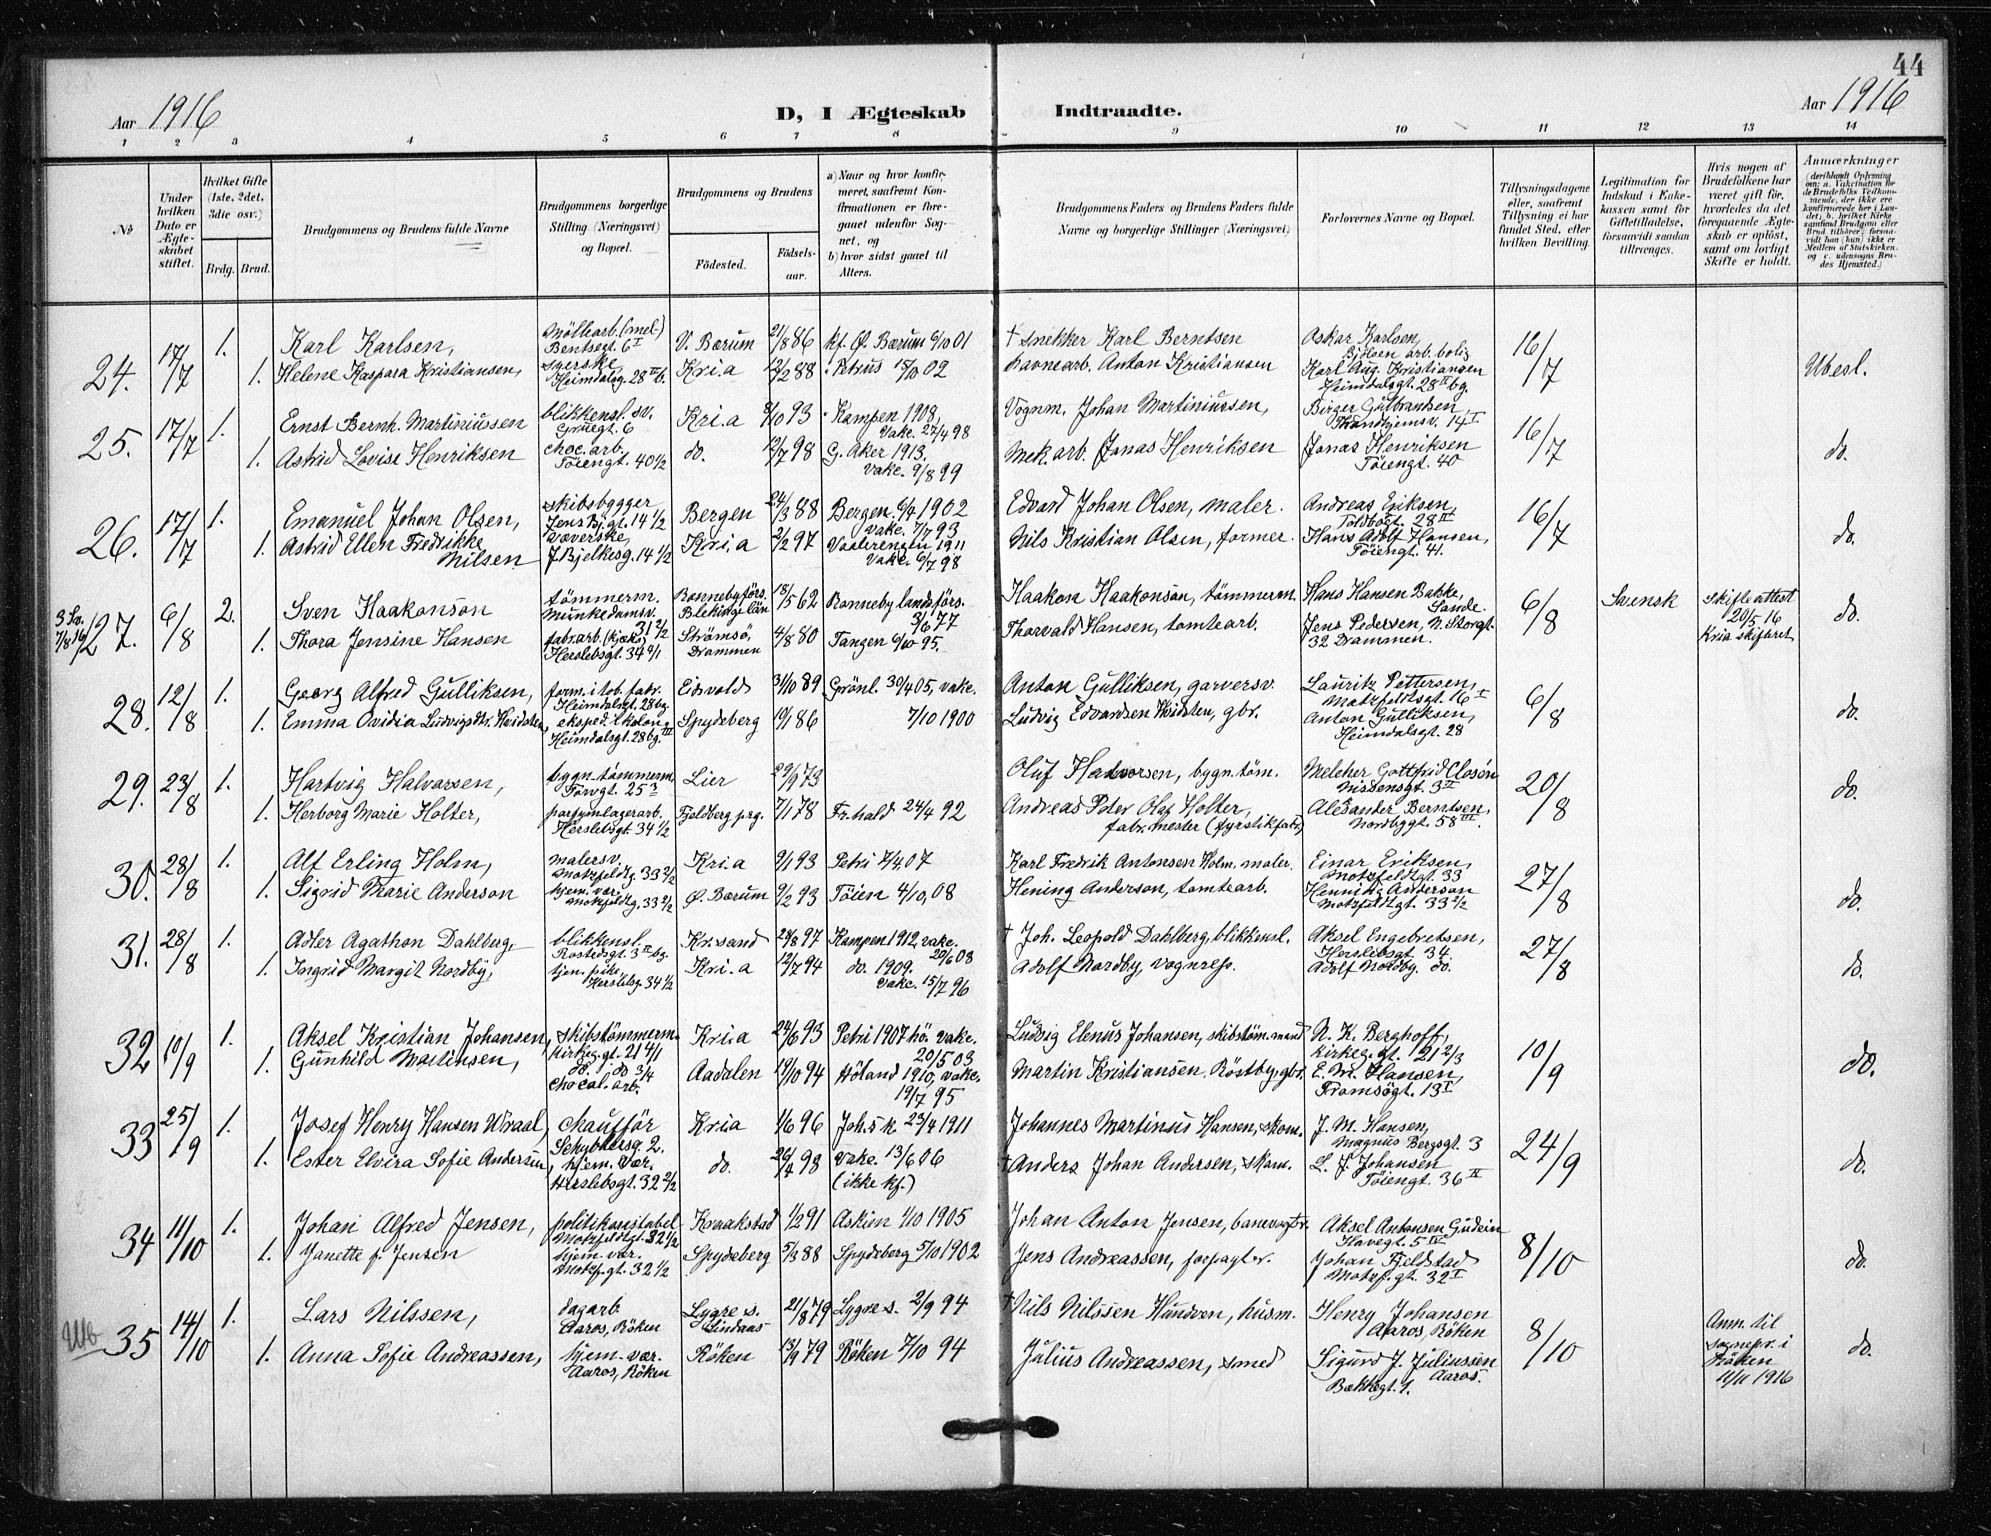 44
Aar 1916
D, I Ægteskab Indtraadte.
Aar 1916
1 2 3 4 5 6 7 8 9 10 11 12 13 14
No
Under hvilken Dato er Ægteskabet stiftet.
Hvilket Gifte (1ste, 2det, 3die osv.)
Brdg. Brud.
Brudgommens og Brudens fulde Navne
Brudgommens borgerlige Stilling (Næringsvei) og Bopæl.
Brudgommens og Brudens
Fødested.
Fødselsaar.
a) Naar og hvor konfirmeret, saafremt Konfirmationen er foregaaet udenfor Sognet, og
b) hvor sidst gaaet til Alters.
Brudgommens Faders og Brudens Faders fulde Navne og borgerlige Stillinger (Næringsvei)
Forlovernes Navne og Bopæl.
Tillysningsdagene eller, saafremt Tillysning ei har fundet Sted, efter hvilken Bevilling.
Legitimation for Indskud i Enkekassen samt for Giftetilladelse, forsaavidt saadan tiltrænges.
Hvis nogen af Brudefolkene har været gift før, hvorledes da det foregaaende Ægteskab er opløst, samt om lovligt Skifte er holdt.
Anmærkninger
(deriblandt Oplysning om: a. Vakcination for de Brudefolks Vedkommende, der ikke ere konfirmerede her i Landet; b. hvilket Kirkesamfund Brudgom eller Brud tilhører, forsaavidt han (hun) ikke er Medlem af Statskirken, og c. udensogns Brudes Hjemsted.)
24. 17/7 1. Karl Karlsen, Möllearb. (mel) Bentsegt. 6 I V. Bærum 21/8 86 kf. Ø. Bærum 6/10 01 † snekker Karl Berntsen Oskar Karlsen, Bjölsen arb. bolig 16/7 Ubesl.
1. Helene Kaspara Kristiansen, syerske Heimdalsg. 28 II b. Kr.i.a 12/2 88 Petrus 15/10 02 havnearb. Anton Kristiansen Karl Aug. Kristiansen Heimdalsgt. 28 II bg.
25. 17/7 1. Ernst Bernh. Martiniussen blikkensl. sv. Gruegt. 6 Kr.i.a 8/10 93 Kampen 1908, Vakc. 27/4 98 Vognm. Johan Martiniussen, Birger Gulbrandsen, Trondhjemsv. 14 I 16/7 do.
1. Astrid Lovise Henriksen choc. arb. Töiengt. 40 1/2 do. 12/7 98 G. Aker 1913, Vakc. 9/8 99 Mek. arb. Jonas Henriksen Jonas Henriksen Töiengt. 40
26. 17/7 1. Emanuel Johan Olsen, skibsbygger Jens Bj. gt. 14 1/2 Bergen 24/3 88 Bergen 6/4 1902 Vakc. 7/7 93 Edvard Johan Olsen, maler. Andreas Eriksen, Toldbogt. 28 II 16/7 do.
1. Astrid Ellen Fredrikke Nilsen væverske, J. Bjelkesg. 14 1/2 Kr.i.a 2/2 97 Vaalerengen 1911 Vakc. 6/7 98 Nils Kristian Olsen, former. Hans Adolf Hansen, Töiengt. 41.
3 Sv. 7/8 16 27. 6/8 2. Sven Haakonson tömmerm. Munkedamsv. 31 2/2 Ronneby förs. Blekinge län 18/5 62 Ronneby landsförs. 3/6 77 Haakon Haakonson, tömmerm. Hans Hansen Bakke, Sande. 6/8 Svensk Skifteattest 20/5 16 Kria skifteret do.
1. Thora Jensine Hansen fabr. arb. (kjeks) Herslebsgt. 34 4/1 Strömsö, Drammen 4/8 80 Tangen 6/10 95. Thorvald Hansen, tomtearb. Jens Pedersen, N. Storgt. 32 Drammen.
28. 12/8 1. Georg Alfred Gulliksen, form. i tob. fabr. Heimdalsgt. 28 bg. Eidsvold 31/10 89 Grönl. 30/4 05, vakc. Anton Gulliksen, garversv. Lauritz Pettersen, Motzfeldtsgt. 16 I 6/8 do.
1. Emma Ovidia Ludvigsdtr. Hvidsten eksped. Heimdalsgt. 28 bg. III Spydeberg 19/1 86 7/10 1900 Ludvig Edvardsen Hvidsten, gbr. Anton Gulliksen, Heimdalsgt. 28
29. 23/8 1. Hartvig Halvorsen, bygn. tömmerm. 25 3 Lier 29/9 73 Oluf Halvorsen, bygn. töm. Melcher Gottfrid Closön Nissensgt. 3 II 20/8 do.
1. Herborg Marie Holter, parfymlagerarb. Herslebsgt. 34 1/2 Fjeldberg prg. 7/1 78 Fr.hald 24/4 92 Andreas Peter Olaf Holter, fabr. mester (fyrstikfabr) Alexander Berntsen, Nordbygt. 58 III.
30. 28/8 1. Alf Erling Holm, malersv. Motzfeldtg. 33 2/2 Kr.i.a 9/1 93 Petri 7/4 07 Karl Fredrik Antonsen Holm, maler. Einar Eriksen, Motzfeldtgt. 33 27/8 do.
1. Sigrid Marie Anderson hjem. vær. Motzfeldtg. 33 2/2 Ø. Bærum 9/2 93 Töien 4/10, 08 Hening Anderson, tomtearb. Henning Anderson Motzfeldtgt. 33 2/2
31. 28/8 1. Adler Agathon Dahlberg, blikkensl. Rostedsgt. 3 II og. Kr.sand 28/8 97 Kampen 1912, vakc. 20/6 08 † Joh. Leopold Dahlberg, blikkensl. Aksel Engebretsen, Herslebsgt. 34. 27/8 do.
1. Ingrid Margit Nordby, hjem. pike Herslebsg. 34 1/2 Kr.i.a 12/7 94 do. 1909. Vakc. 15/7 96 Adolf Nordby, vognrep. Adolf Nordby. do.
32 10/9 1. Aksel Kristian Johansen, skibstömmerm. Kirkeg. gt. 21 4/1 Kr.i.a 24/6 93 Petri 1907 hö. vakc. 20/5 03 Ludvig Elenus Johansen, skibstöm. mand N. K. Berghoff, Kirkeg. gt. 21 2/3 10/9 do.
1. Gunhild Martinsen, do. do 3/4 Chocol. arb. Aadalen 19/10 94 Höland 1910, vakc. 19/7 95 Martin Kristiansen Röstby, gbr. E. M. Hansen, Tromsögt. 13 I
33 25/9 1. Josef Henry Hansen Wraal, chaufför Schüblersg. 2. Kr.ia 1/6 96 Joh.s k. 23/4 1911 Johannes Martinus Hansen, skom. J. M. Hansen, Magnus Bergsgt. 3 24/9 do.
1. Ester Elvira Sofie Andersen, hjem. vær. Herslebsgt. 32 2/2 do. 26/4 98 Vakc. 13/6 06 (ikke kf.) † Anders Johan Andersen, skom. L. J. Johansen Töiengt. 36 IV
34 11/10 1. Johan Alfred Jensen, politikonstabel Motzfeldtgt. 32 1/2 Kraakstad 1/2 91 Askim 1/10 1905 Johan Anton Jensen, banevogtr. Aksel Antonsen Gudein Havegt. 5 IV 8/10 do.
1. Janette f. Jensen hjem. vær. Motzf. gt. 32 1/2 Spydeberg 5/3 88 Spydeberg 5/10 1902 Jens Andreassen, forpagter. Johan Fjeldstad Motzf. gt. 32 I
Ub 35 14/10 1. Lars Nilssen, dagarb. Aaros, Röken Lygre s. Lindaas 21/8 79 Lygre s. 2/9 94 † Nils Nilssen Hundven, husm. Henry Johansen Aaros, Röken 8/10 Anm. til sognepr. i Röken 11/11 1916 do.
1. Anna Sofie Andreassen, hjem. vær. Aaros, Röken Röken 13/9 79 Röken 7/10 94 Julius Andreassen, smed Sigurd J. Juliussen Aaros. Bakkegt. 1.